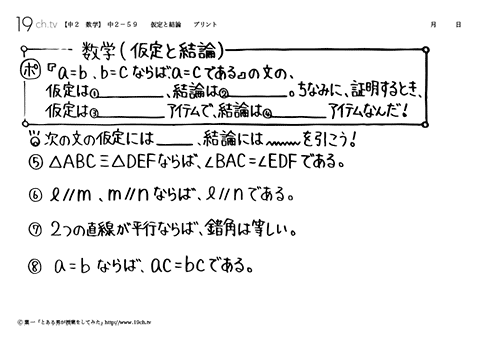 19ch.tv 【中2 数学】 中2－59 仮定と結論 プリント 月 日
数学(仮定と結論)
ポ 『a=b、b=cならば、a=cである』の文の、
仮定は① ＿＿＿＿、結論は② ＿＿＿＿。ちなみに、証明するとき、
仮定は③ ＿＿＿＿ アイテムで、結論は④ ＿＿＿＿ アイテムなんだ!
次の文の仮定には＿＿＿、結論には﹏﹏﹏を引こう!
⑤ △ABC≡△DEFならば、∠BAC=∠EDFである。
⑥ l//m、m//nならば、l//nである。
⑦ 2つの直線が平行ならば、錯角は等しい。
⑧ a=bならば、ac=bcである。
© 葉一『とある男が授業をしてみた』http://www.19ch.tv